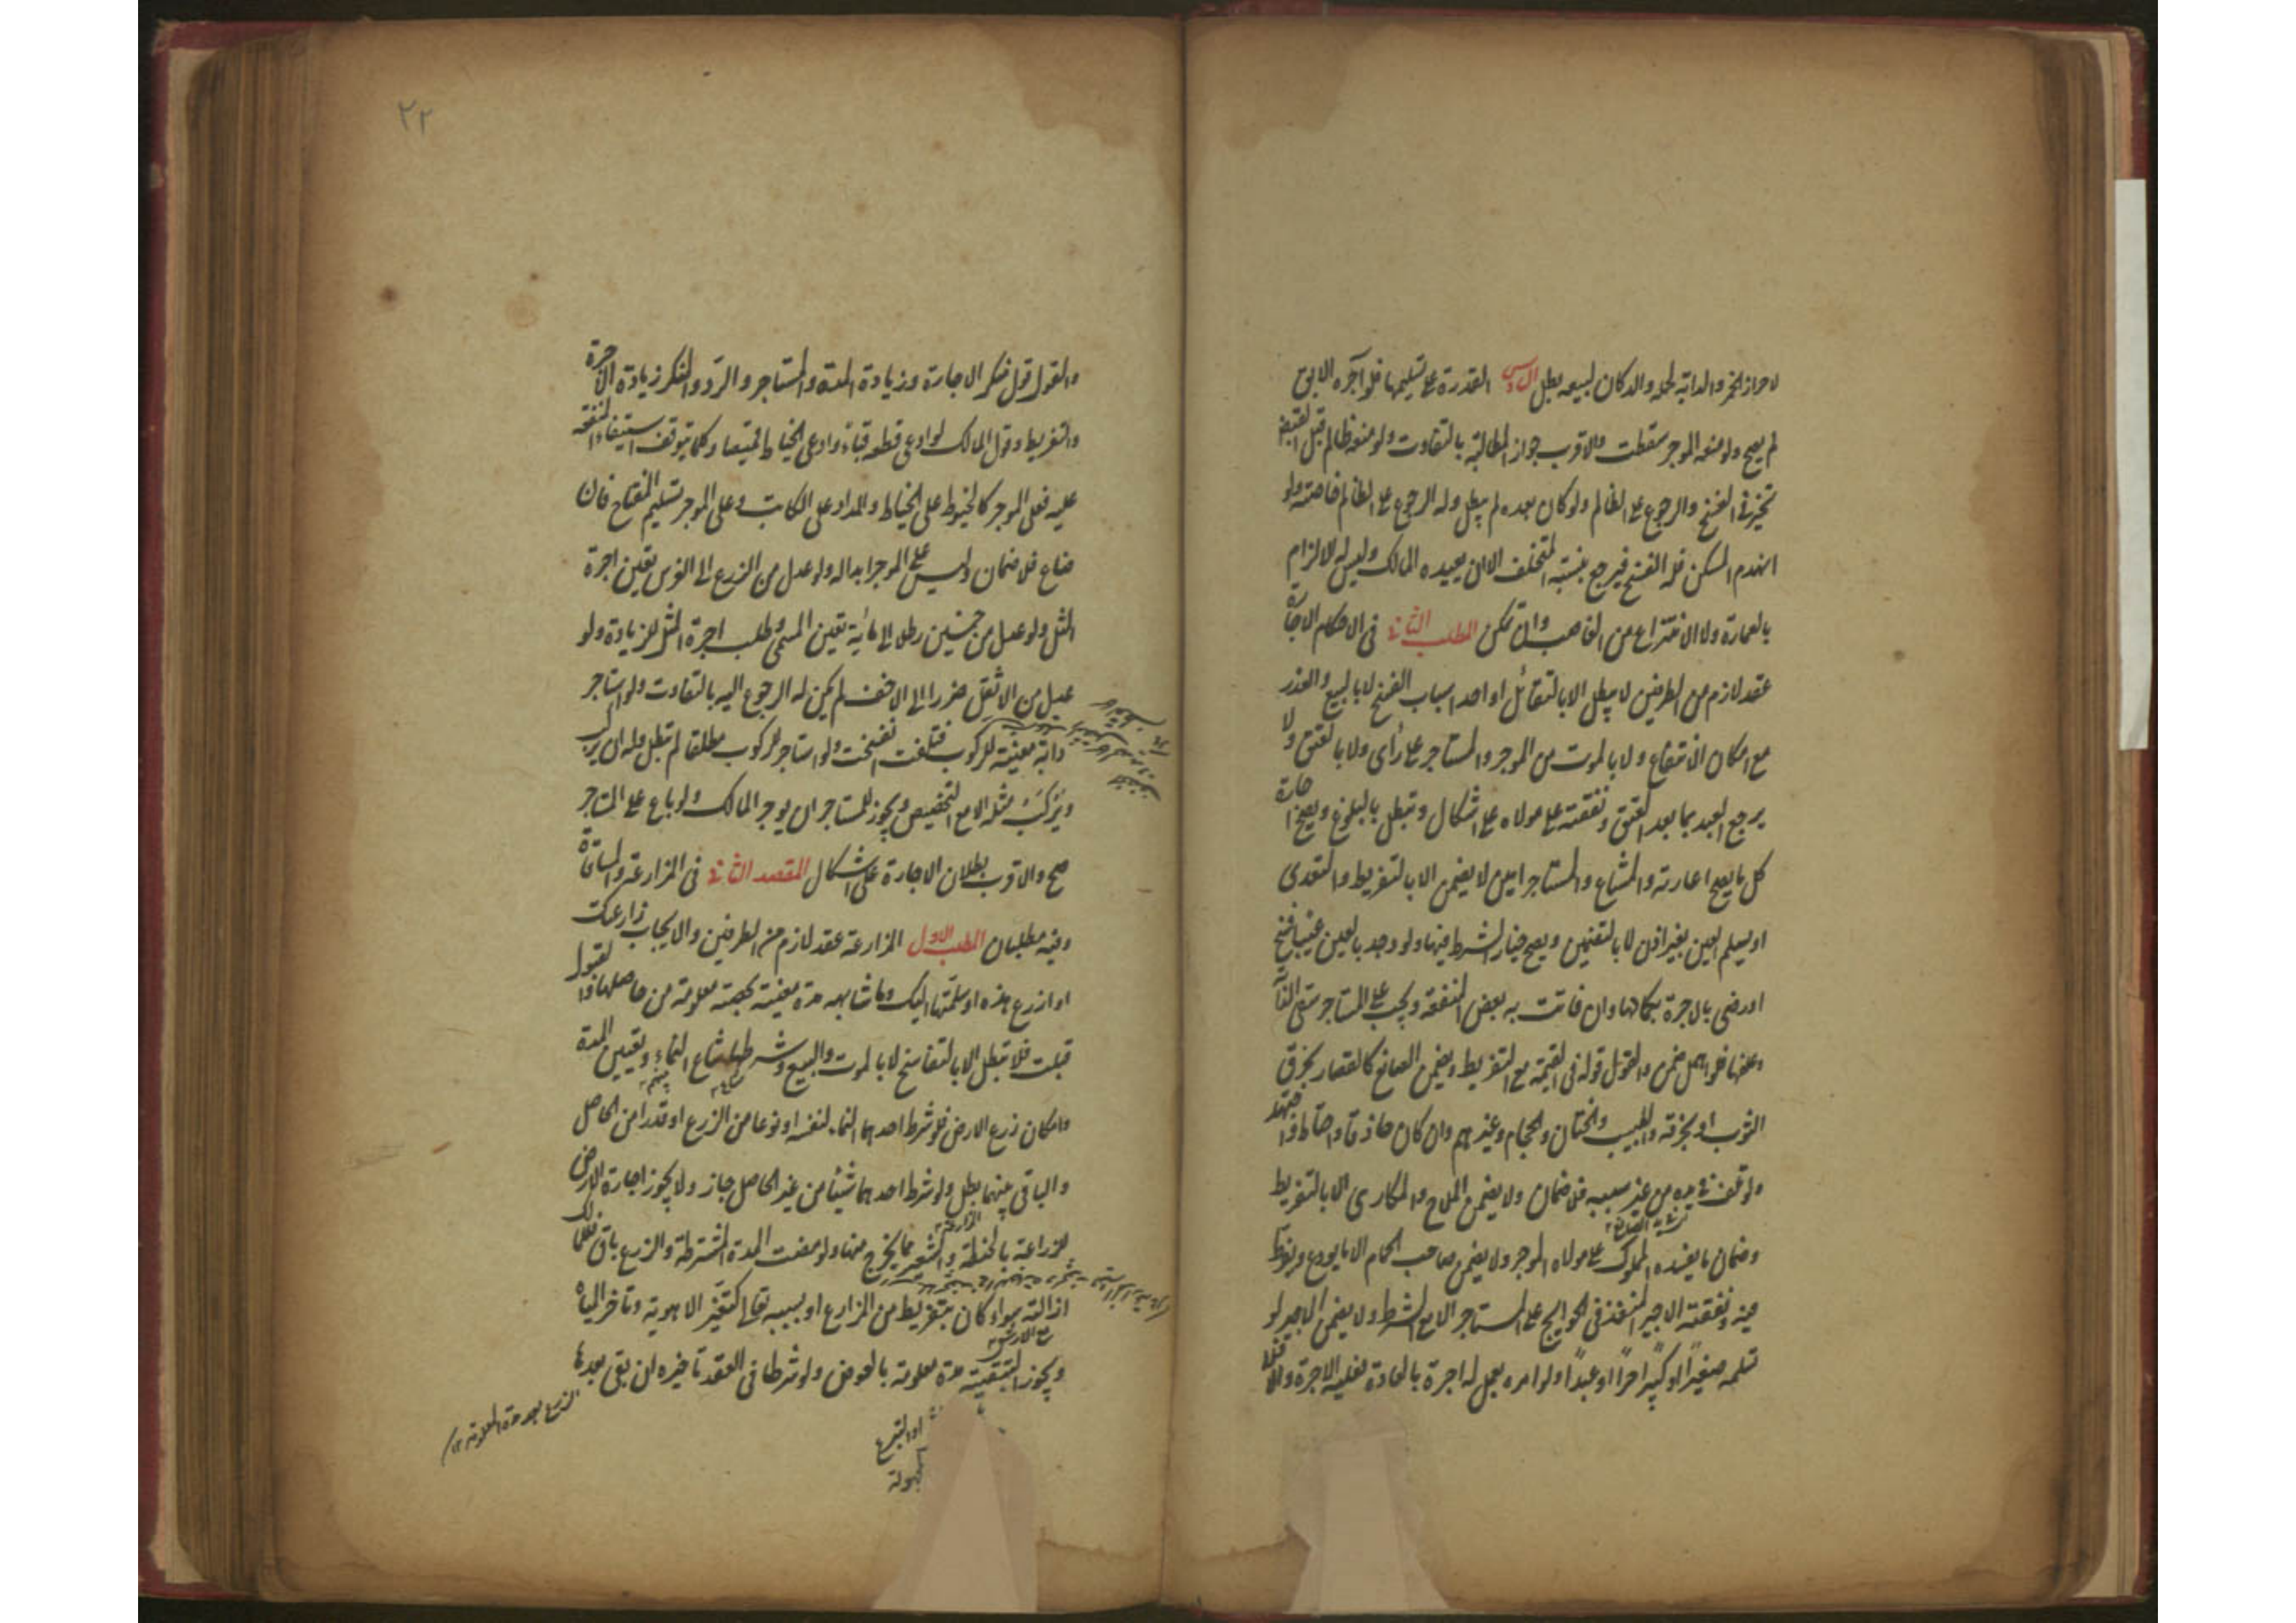 لاحراز الخمر والدابة لحمله والدكان لبيعه بطل السادس القدرة على تسليمها فلو آجره الابق
لم يصح ولو منعه الموجر سقطت والاقرب جواز المطالبة بالتفاوت ولو منعه ظالم قبل القبض
تخير في الفسخ والرجوع على الظالم ولو كان بعده لم يبطل وله الرجوع على الظالم خاصة ولو
انهدم المسكن فله الفسخ فيرجع بنسبة المتخلف الا ان يعيده المالك وليس له الالزام
بالعمارة ولا الانتزاع من الغاصب وان تمكن المطلب الثاني في الاحكام الاجارة
عقد لازم من الطرفين لا يبطل الا بالتقائل او احد اسباب الفسخ لا بالبيع والعذر
مع امكان الانتفاع ولا بالموت من الموجر والمستاجر على رأى ولا بالعتق ولا
يرجع العبد بما بعد العتق ونفقته على مولاه على اشكال وتبطل بالبلوغ ويصح اجارة
كل ما يصح اعارته والمشاع والمستاجر امين لا يضمن الا بالتفريط والتعدى
او يسلم العين بغير اذن لا بالتضمين ويصح خيار الشرط فيها ولو وجد بالعين عيبا فسخ
او رضى بالاجرة بكمالها وان فاتت به بعض المنفعة ويجب على المستاجر سقى الدابة
وعلفها فلو اهمل ضمن والقول قوله في القيمة مع التفريط ويضمن الصانع كالقصار يحرق
الثوب او يخرقه والطبيب والختان والحجام وغيرهم وان كان حاذقا واحتاط واجتهد
ولو تلف في يده من غير سببه فلا ضمان ولا يضمن الملاح والمكارى الا بالتفريط
وضمان ما يفسده المملوك على مولاه الموجر ولا يضمن صاحب الحمام الا ما يودع ويفرط
فيه ونفقة الاجير المنفذ في الحوايج على المستاجر الا مع الشرط ولا يضمن الاجير لو
تسلمه صغيراً او كبيراً حراً او عبداً ولو امره بعمل له اجرة بالعادة فعليه الاجرة والا فلا
٢٢
والقول قول منكر الاجارة وزيادة المدة والمستاجر والرد والمنكر زيادة الاجرة
والتفريط وقول المالك لو ادعى قطعه قباءً وادعى الخياط قميصا وكلما يتوقف استيفاء المنفعة
عليه فعلى الموجر كالخيوط على الخياط والمداد على الكاتب وعلى الموجر تسليم المفتاح فان
ضاع فلا ضمان وليس على الموجر ابداله ولو عدل من الزرع الى الغرس تعين اجرة
المثل ولو عدل من خمسين رطلا الى مائة تعين المسمى وطلب اجرة المثل للزيادة ولو
عدل من الاثقل ضررا الى الاخف لم يكن له الرجوع اليه بالتفاوت ولو استاجر
دابة معينة للركوب فتلفت انفسخت ولو استاجر للركوب مطلقا لم تبطل وله ان يركب
ويُركب مثله الا مع التخصيص ويجوز للمستاجر ان يوجر المالك ولو باع على المستاجر
صح والاقرب بطلان الاجارة على اشكال المقصد الثاني في المزارعة والمساقاة
وفيه مطلبان المطلب الاول المزارعة عقد لازم من الطرفين والايجاب زارعتك
او ازرع هذه او سلمتها اليك وما شابهه مدة معينة بحصة معلومة من حاصلها والقبول
قبلت فلا تبطل الا بالتفاسخ لا بالموت والبيع وشرطها شياع النماء وتعيين المدة
وامكان زرع الارض فلو شرط احدهما النماء لنفسه او نوعا من الزرع او قدرا من الحاصل
والباقى بينهما بطل ولو شرط احدهما شيئا من غير الحاصل جاز ولا يجوز اجارة الارض
للزراعة بالحنطة والشعير مما يخرج منها ولو مضت المدة المشترطة والزرع باق فللمالك
ازالته سواء كان بتفريط من الزارع او بسببه تعالى كتغير الاهوية وتاخر المياه
ويجوز التبقية مدة معلومة بالعوض ولو شرطا في العقد تاخيره ان بقى بعدها